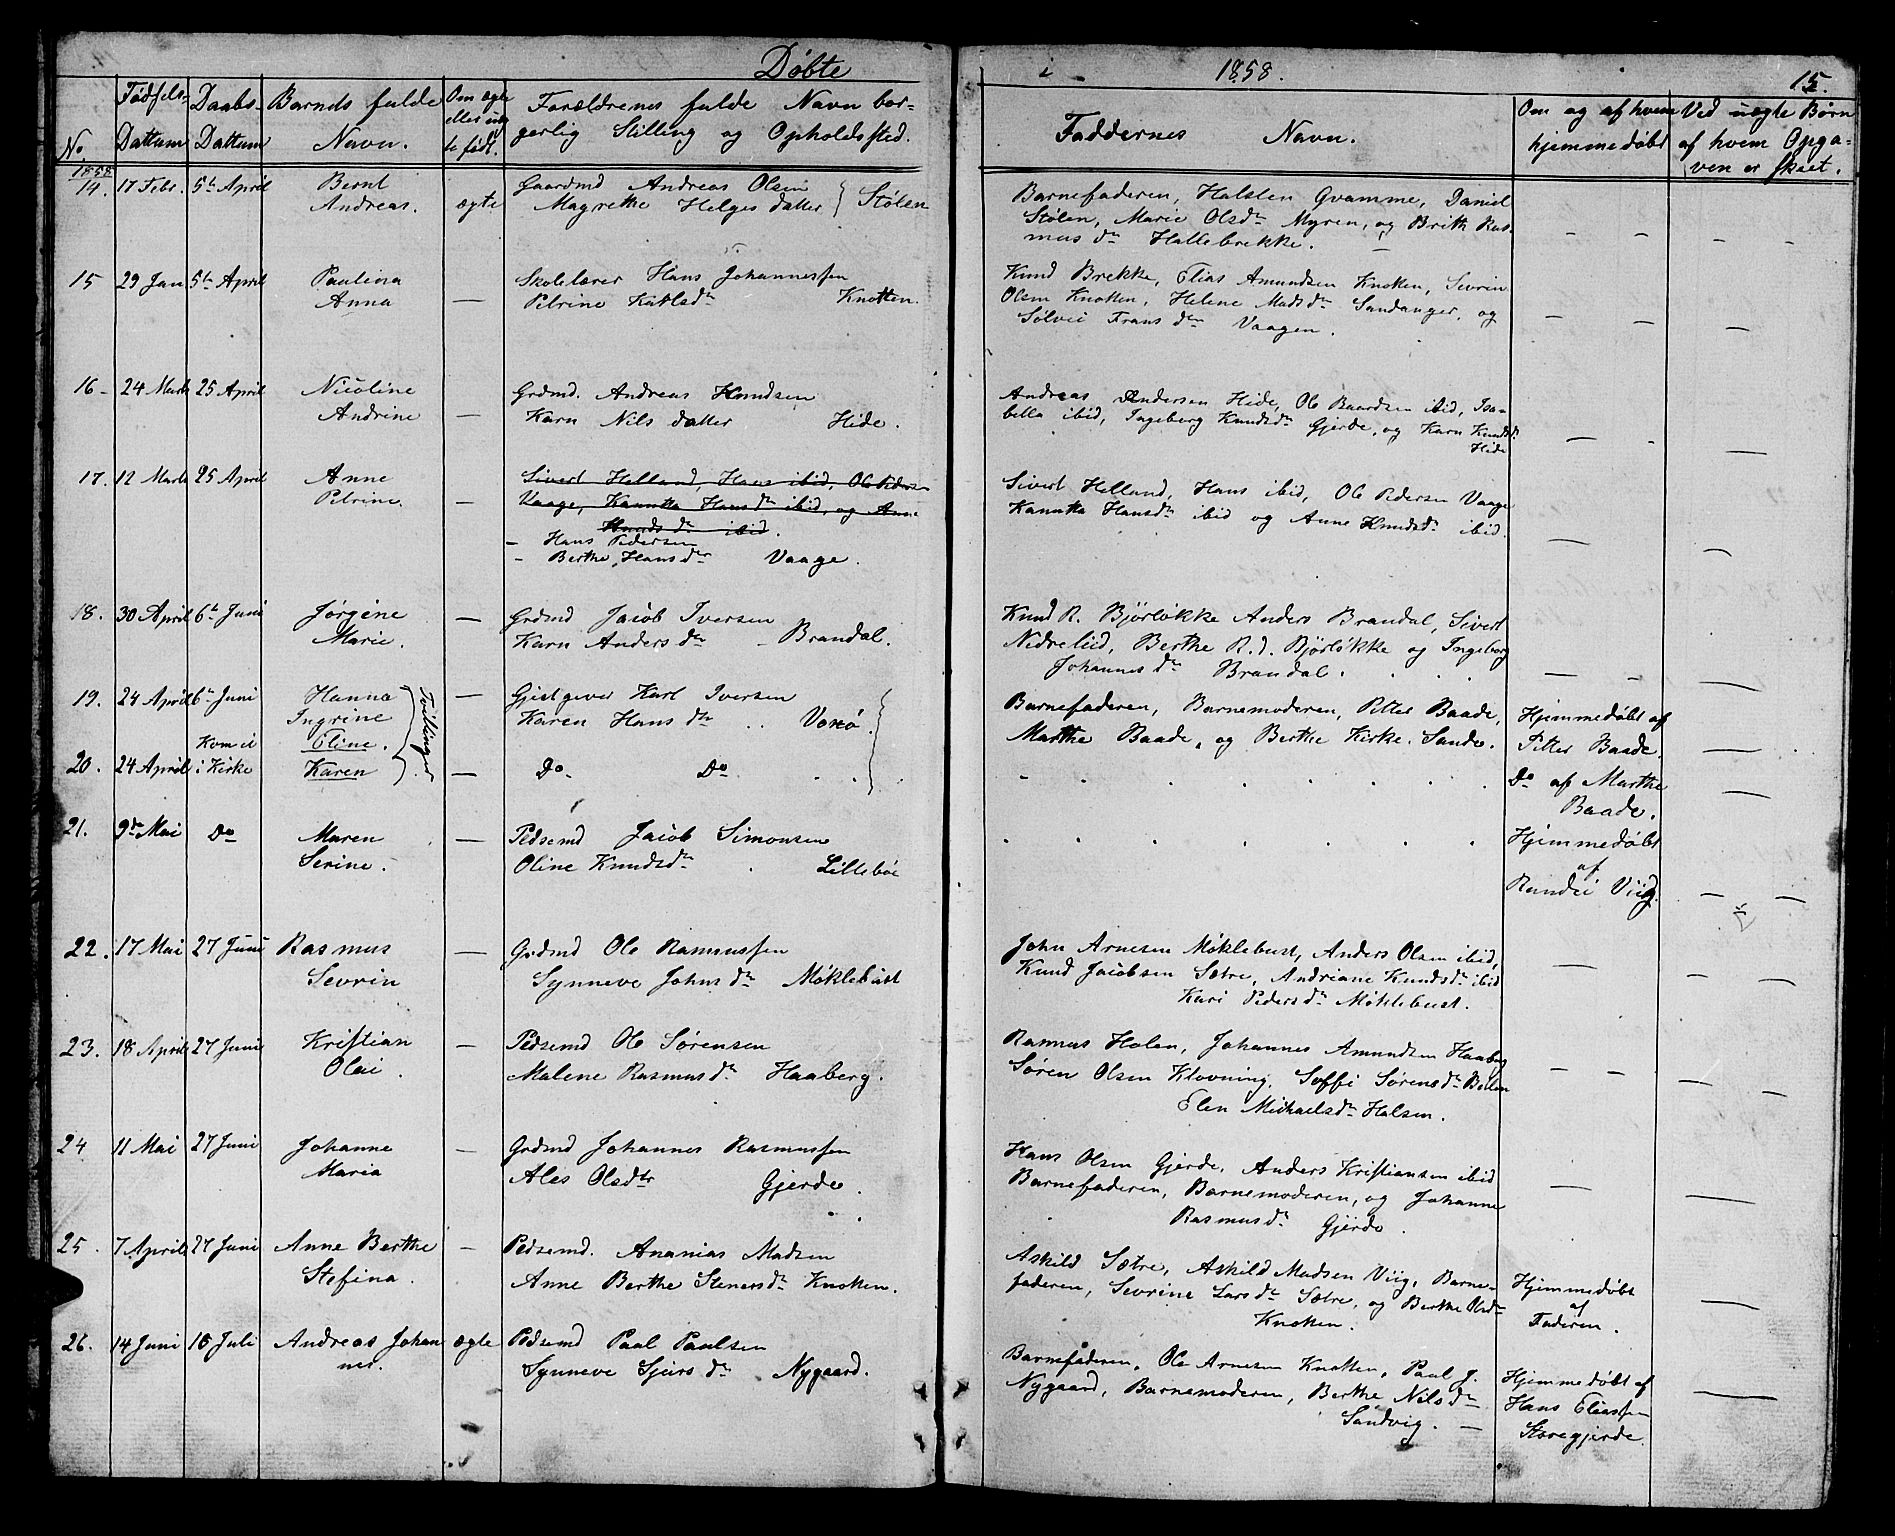 Døbte
i 1858.
15.
No.
Fødsels-
Dattum
Daabs-
Dattum
Barnets fulde
Navn.
Om ægte
eller uæg
te født.
Forældrenes fulde Navn bor-
gerlig Stilling og Opholdsted.
Faddernes Navn.
Om og af hvem
hjemmedøbt
Ved uægte Børn
af hvem Opga-
ven er skeet.
1858
14. 17 Febr. 5te April Bernt
Andreas. ægte
Gaardmd Andreas Olsen
Magrethe Helges datter } Stølen
Barnefaderen, Halsten Qvamme, Daniel
Stølen, Marie Olsdtr Myren, og Brith Ras-
mus dtr Hallebrekke.
15 29 Jan 5te April Paulina
Anna —
Skolelærer Hans Johannessen
Petrine Katlsdtr Knotten.
Knud Brekke, Elias Amundsen Knotten, Sevrin
Olsen Knotten, Helene Madsdtr Sandanger, og
Sølvei Frans dtr Vaagen.
16 - 24 Marts 25 April Nicoline
Andrine —
Grdmd. Andreas Knudsen
Karn Nils datter Hide.
Andreas Andersen Hide, Ole Baardsen ibid, Isa-
bella ibid, Ingeborg Knudsdtr Gjerde, og Karn Knudsdtr
Hide
17. 12 Marts 25 April Anne
Petrine. —
Sivert Helland, Hans ibid, Ole Pedersen
Vaage, Kannka Hansdtr ibid, og Anne
Knudsdtr ibid.
- Hans Pedersen
- Berthe Hansdtr Vaage.
Sivert Helland, Hans ibid, Ole Pedersen Vaage
Kannka Hansdtr ibid og Anne Knudsdtr ibid.
18. 30 April 6te Juni Jørgine
Marie. —
Grdmd Jacob Iversen
Karn Anders dtr - Brandal.
Knud R. Bjørløkke Anders Brandal, Sivert
Nidreliid, Berthe R. d. Bjørløkke og Ingeborg
Johannes dtr Brandal.
19. 24 April 6te Juni Hanna
Ingrine
Eline. Tvillinger —
Gjestgiver Karl Iversen
Karen Hans dtr Voxø.
Barnefaderen, Barnemoderen, Petter Baade,
Marthe Baade, og Berthe Kirke. Sande.
Hjemmedøbt af
Petter Baade.
Kom ei
20. 24 April i Kirke Karen —
Do Do
Do af Marthe
Baade.
21. 9de Mai Do Maren
Serine. —
Pedsemd Jacob Simonsen
Oline Knudsdtr Lillebøe
Hjemmedøbt
af
Randei Viig.
22. 17 Mai 27 Juni Rasmus
Sevrin —
Grdmd Ole Rasmussen
Synneve Johns dtr Møklebust
John Arnesen Møklebust, Anders Olsen ibid,
Knud Jacobsen Sætre, Andriane Knudsdtr ibid
Kari Pedersdtr Møklebust.
23. 18 April 27 Juni Kristian
Olai. —
Pedsemd Ole Sørensen
Malene Rasmusdtr Haaberg.
Rasmus Holen, Johannes Amundsen Haaberg
Søren Olsen Klovning, Soffi Sørensdtr
Elen Michaelsdtr Halsen.
24 11 Mai 27 Juni Johanne
Maria —
Grdmd Johannes Rasmussen
Ales Olsdtr Gjerde.
Hans Olsen Gjerde, Anders Kristiansen ibid
Barnefaderen, Barnemoderen, og Johanne
Rasmusdtr Gjerde.
25. 7 April 27 Juni Anne Berthe
Stefina. —
Pedsemd. Ananias Madsen
Anne Berthe Stenersdtr Knotten.
Askild Sætre, Askild Madsen Viig, Barne-
faderen, Sevrine Larsdtr Sætre, og Berthe Olsdtr
Knotten.
Hjemmedøbt
af
Faderen.
26. 14 Juni 18 Juli Andreas Johan
nes. ægte
Pedsemd Paal Paulsen
Synneve Sjurs dtr Nygaard.
Barnefaderen, Ole Arnesen Knotten, Paul J.
Nygaard, Barnemoderen, Berthe Nilsdtr
Sandvig.
Hjemmedøbt af
Hans Eliassen
Storegjerde.